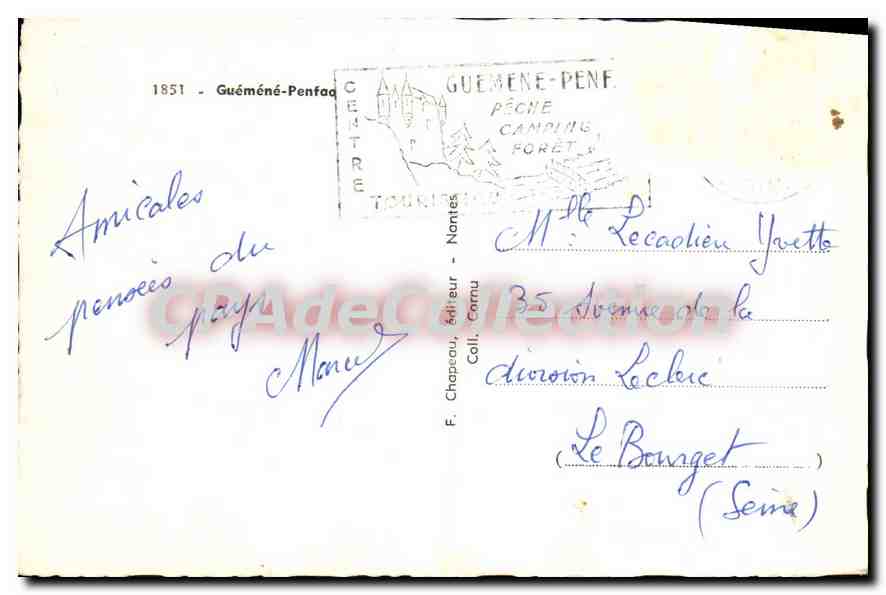 1851 - Guéméné-Penfao
CENTRE
GUEMENE-PENF
PÊCHE
CAMPING
FORÊT
TOURISTIQUE
Amicales
pensées du
pays
Marcel
F. Chapeau, éditeur - Nantes
Coll. Cornu
CPAdeCollection
Mlle Lecadieu Yvette
35 Avenue de la
division Leclerc
(Le Bourget)
(Seine)